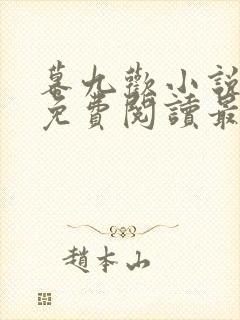 幕九歡小說
免費閱讀最
趙本山